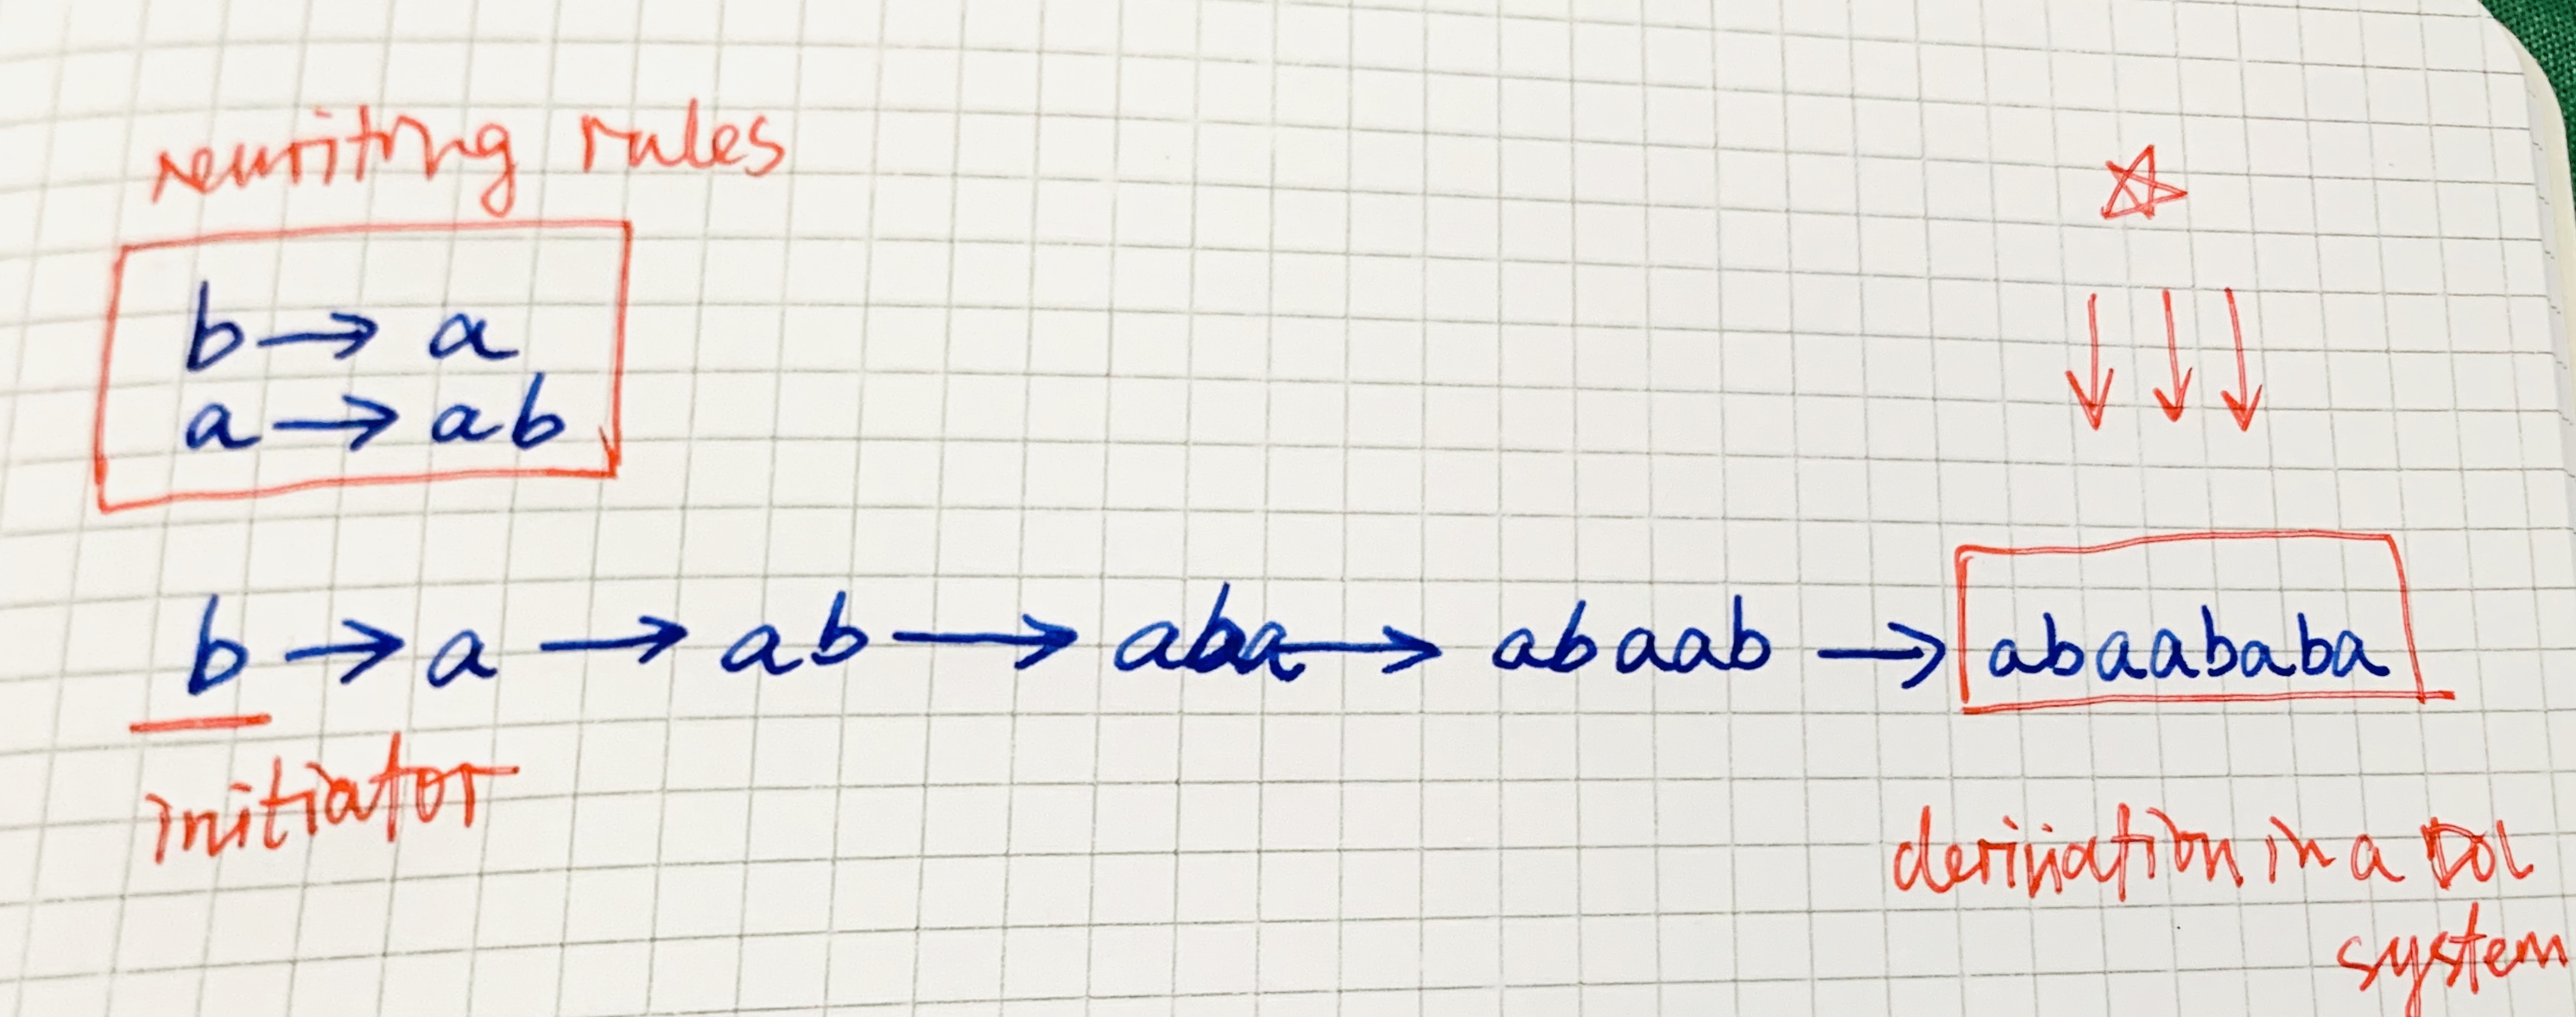 rewriting rules
b → a
a → ab
b → a → ab → aba → abaab → abaababa
initiator
derivation in a DOL
system